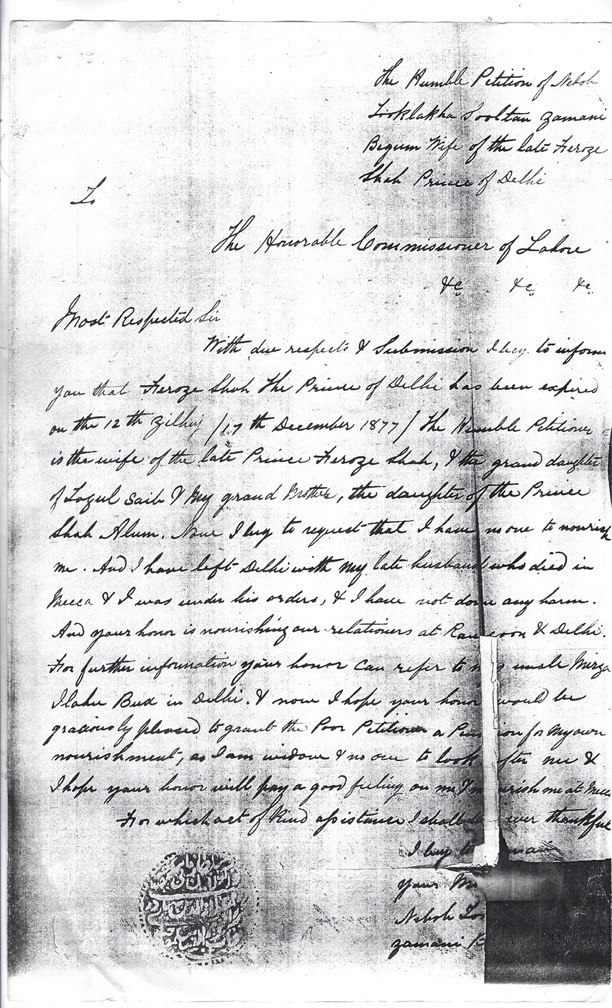 The Humble Petition of Neboh
Zooklakha Sooltan Zamani
Begum Wife of the late Feroze
Shah Prince of Delhi
To
The Honorable Commissioner of Lahore
&c. &c. &c.
Most Respected Sir
With due respects & Submission I beg to inform
you that Feroze Shah The Prince of Delhi has been expired
on the 12th Zilhij /17th December 1877/ The Humble Petitioner
is the wife of the late Prince Feroze Shah, & the grand daughter
of Saib & My grand Mother, the daughter of the Prince
Shah Alum. Now I beg to request that I have no one to nourish
me. And I have left Delhi with my late husband who died in
Mecca & I was under his orders, & I have not done any harm.
And your honor is nourishing our relationers at Rangoon & Delhi.
For further information your honor can refer to my uncle Mirza
Ilahee Bux in Delhi. & now I hope your honor would be
graciously pleased to grant the Poor Petitioner a Pension for my own
nourishment, as I am widow & no one to look after me &
I hope your honor will pay a good feeling on me & nourish me at Mecca
For which act of kind assistance I shall be ever thankful
I beg to remain
your
Neboh
Zamani